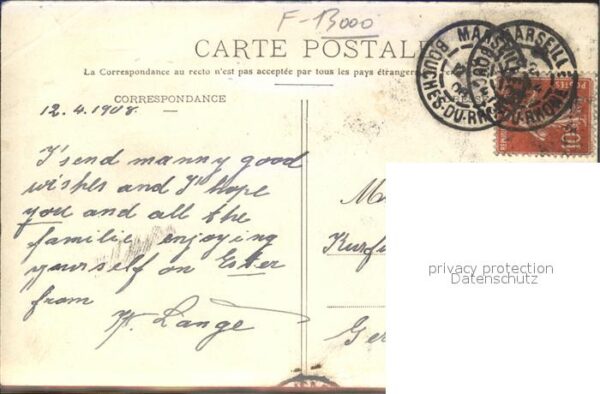 F-13000
CARTE POSTALE
La Correspondance au recto n'est pas acceptée par tous les pays étrangers
CORRESPONDANCE
12.4.1908.
I'send manny good
wishes and I' hope
you and all the
familie enjoying
yourself on Ester
from
Lange
MARSEILLE
BOUCHES-DU-RHONE
MARSEILLE
DU-RHONE
POSTES
10
Ger
privacy protection
Datenschutz